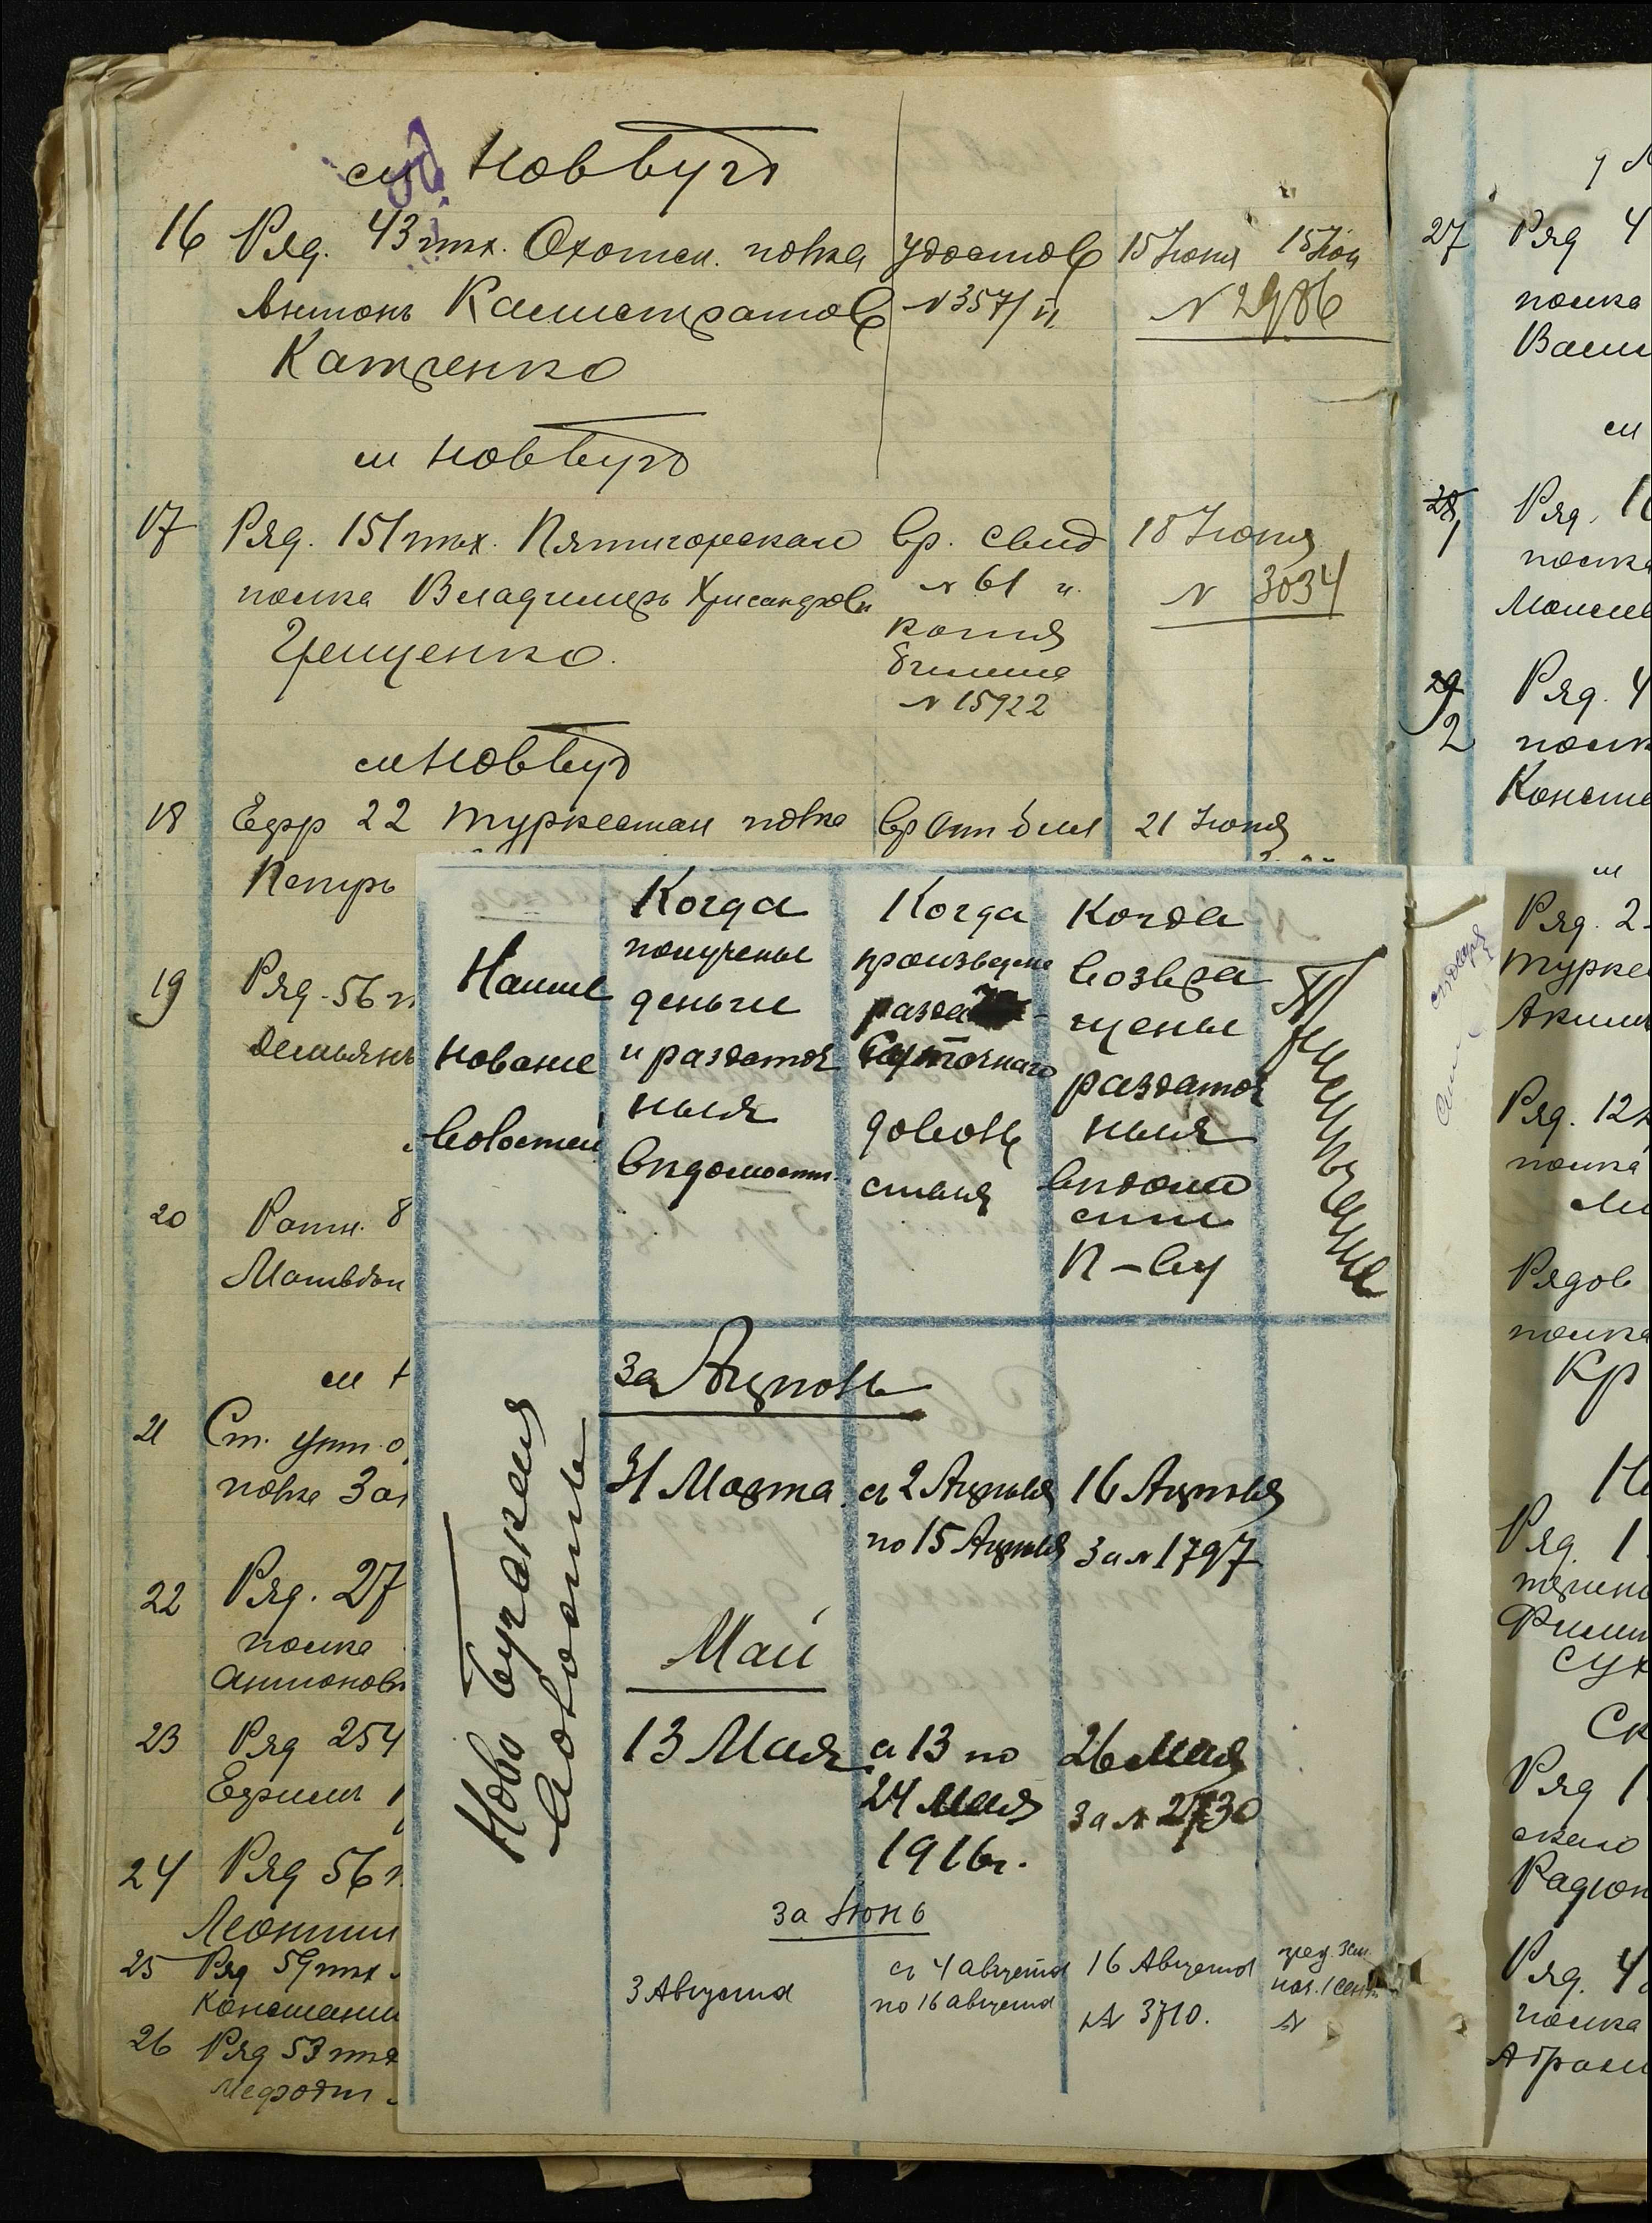 м Новбугъ
16 Ряд. 43 пех. Охотск. полка
Антонъ Калистратов
Катченко
удостов
№ 357/
15 Іюня 15 Іюн
№ 2986
м Новбугъ
17 Ряд. 151 пех. Пятигорскаго
полка Владимиръ Хрисанфови
Грищенко.
вр. свид
№ 61
копія
билета
№ 15922
18 Іюня
№ 3034
м Новбугъ
18 Ефр 22 Туркестан полка
Петръ
вр отп бил
21 Іюня
19 Ряд. 56 п
Демьянъ
20 Ратн. 8
Матвѣй
м Н
21 Ст. унт. о
полка За
22 Ряд. 27
полка
Антонов
23 Ряд 254
Ефимъ
24 Ряд 56
Леонтий
25 Ряд 59 пех
Констант
26 Ряд 53 пех
Мефодій
Наиме
нованіе
Волостей
Когда
получены
деньги
и раздаточ
ныя
вѣдомости
Когда
произведена
разда
суточнаго
доволь
ствія
Когда
возвра
щены
раздаточ
ныя
вѣдомо
сти
П-ву
Примѣчаніе
Ново Бугская
волость
за Апрѣль
31 Марта
съ 2 Апрѣля
по 15 Апрѣля
16 Апрѣля
за № 1797
Май
13 Мая
съ 13 по
24 Мая
1916 г.
26 Мая
за № 2730
за Июнь
3 Августа
съ 4 августа
по 16 августа
16 Августа
№ 3710.
№
27 Ряд 4
полка
Васи
м
28 1 Ряд.
полка
Моисе
29 2 Ряд. 4
полк
Конста
м
Ряд. 2
Турке
Аким
Ряд. 12
полка
Рядов
полка
Кр
Ряд. 1
Филип
Сух
Ск
Ряд 1
скаго
Радіон
Ряд. 4
полка
Абрам